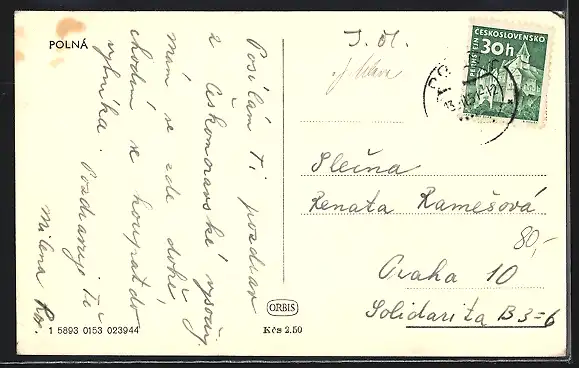 POLNÁ
Posílám Ti pozdrav
z Českomoravské vysočiny.
Mám se zde dobře,
chodím se koupat do
rybníka. Pozdravuje Tě
Milena
1 5893 0153 023944
ORBIS
Kčs 2.50
ČESKOSLOVENSKO
30h
PEZINOK
Slečna
Renata Ramešová
80,-
Praha 10
Solidarita B3=6